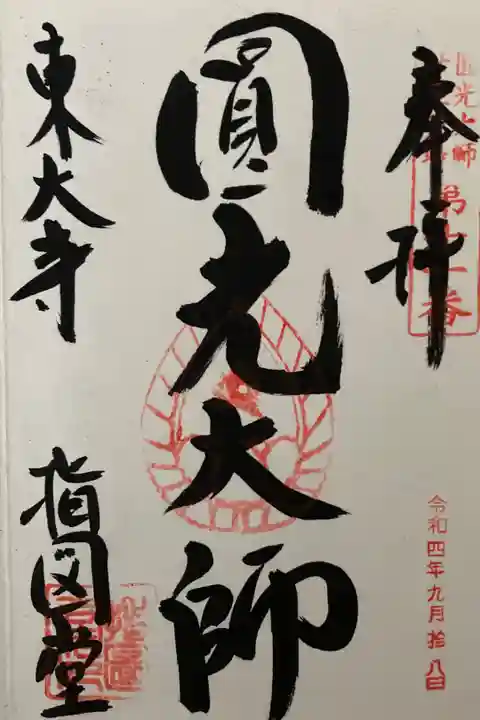 奉拝
圓光大師
東大寺
指図堂
令和四年九月拾八日